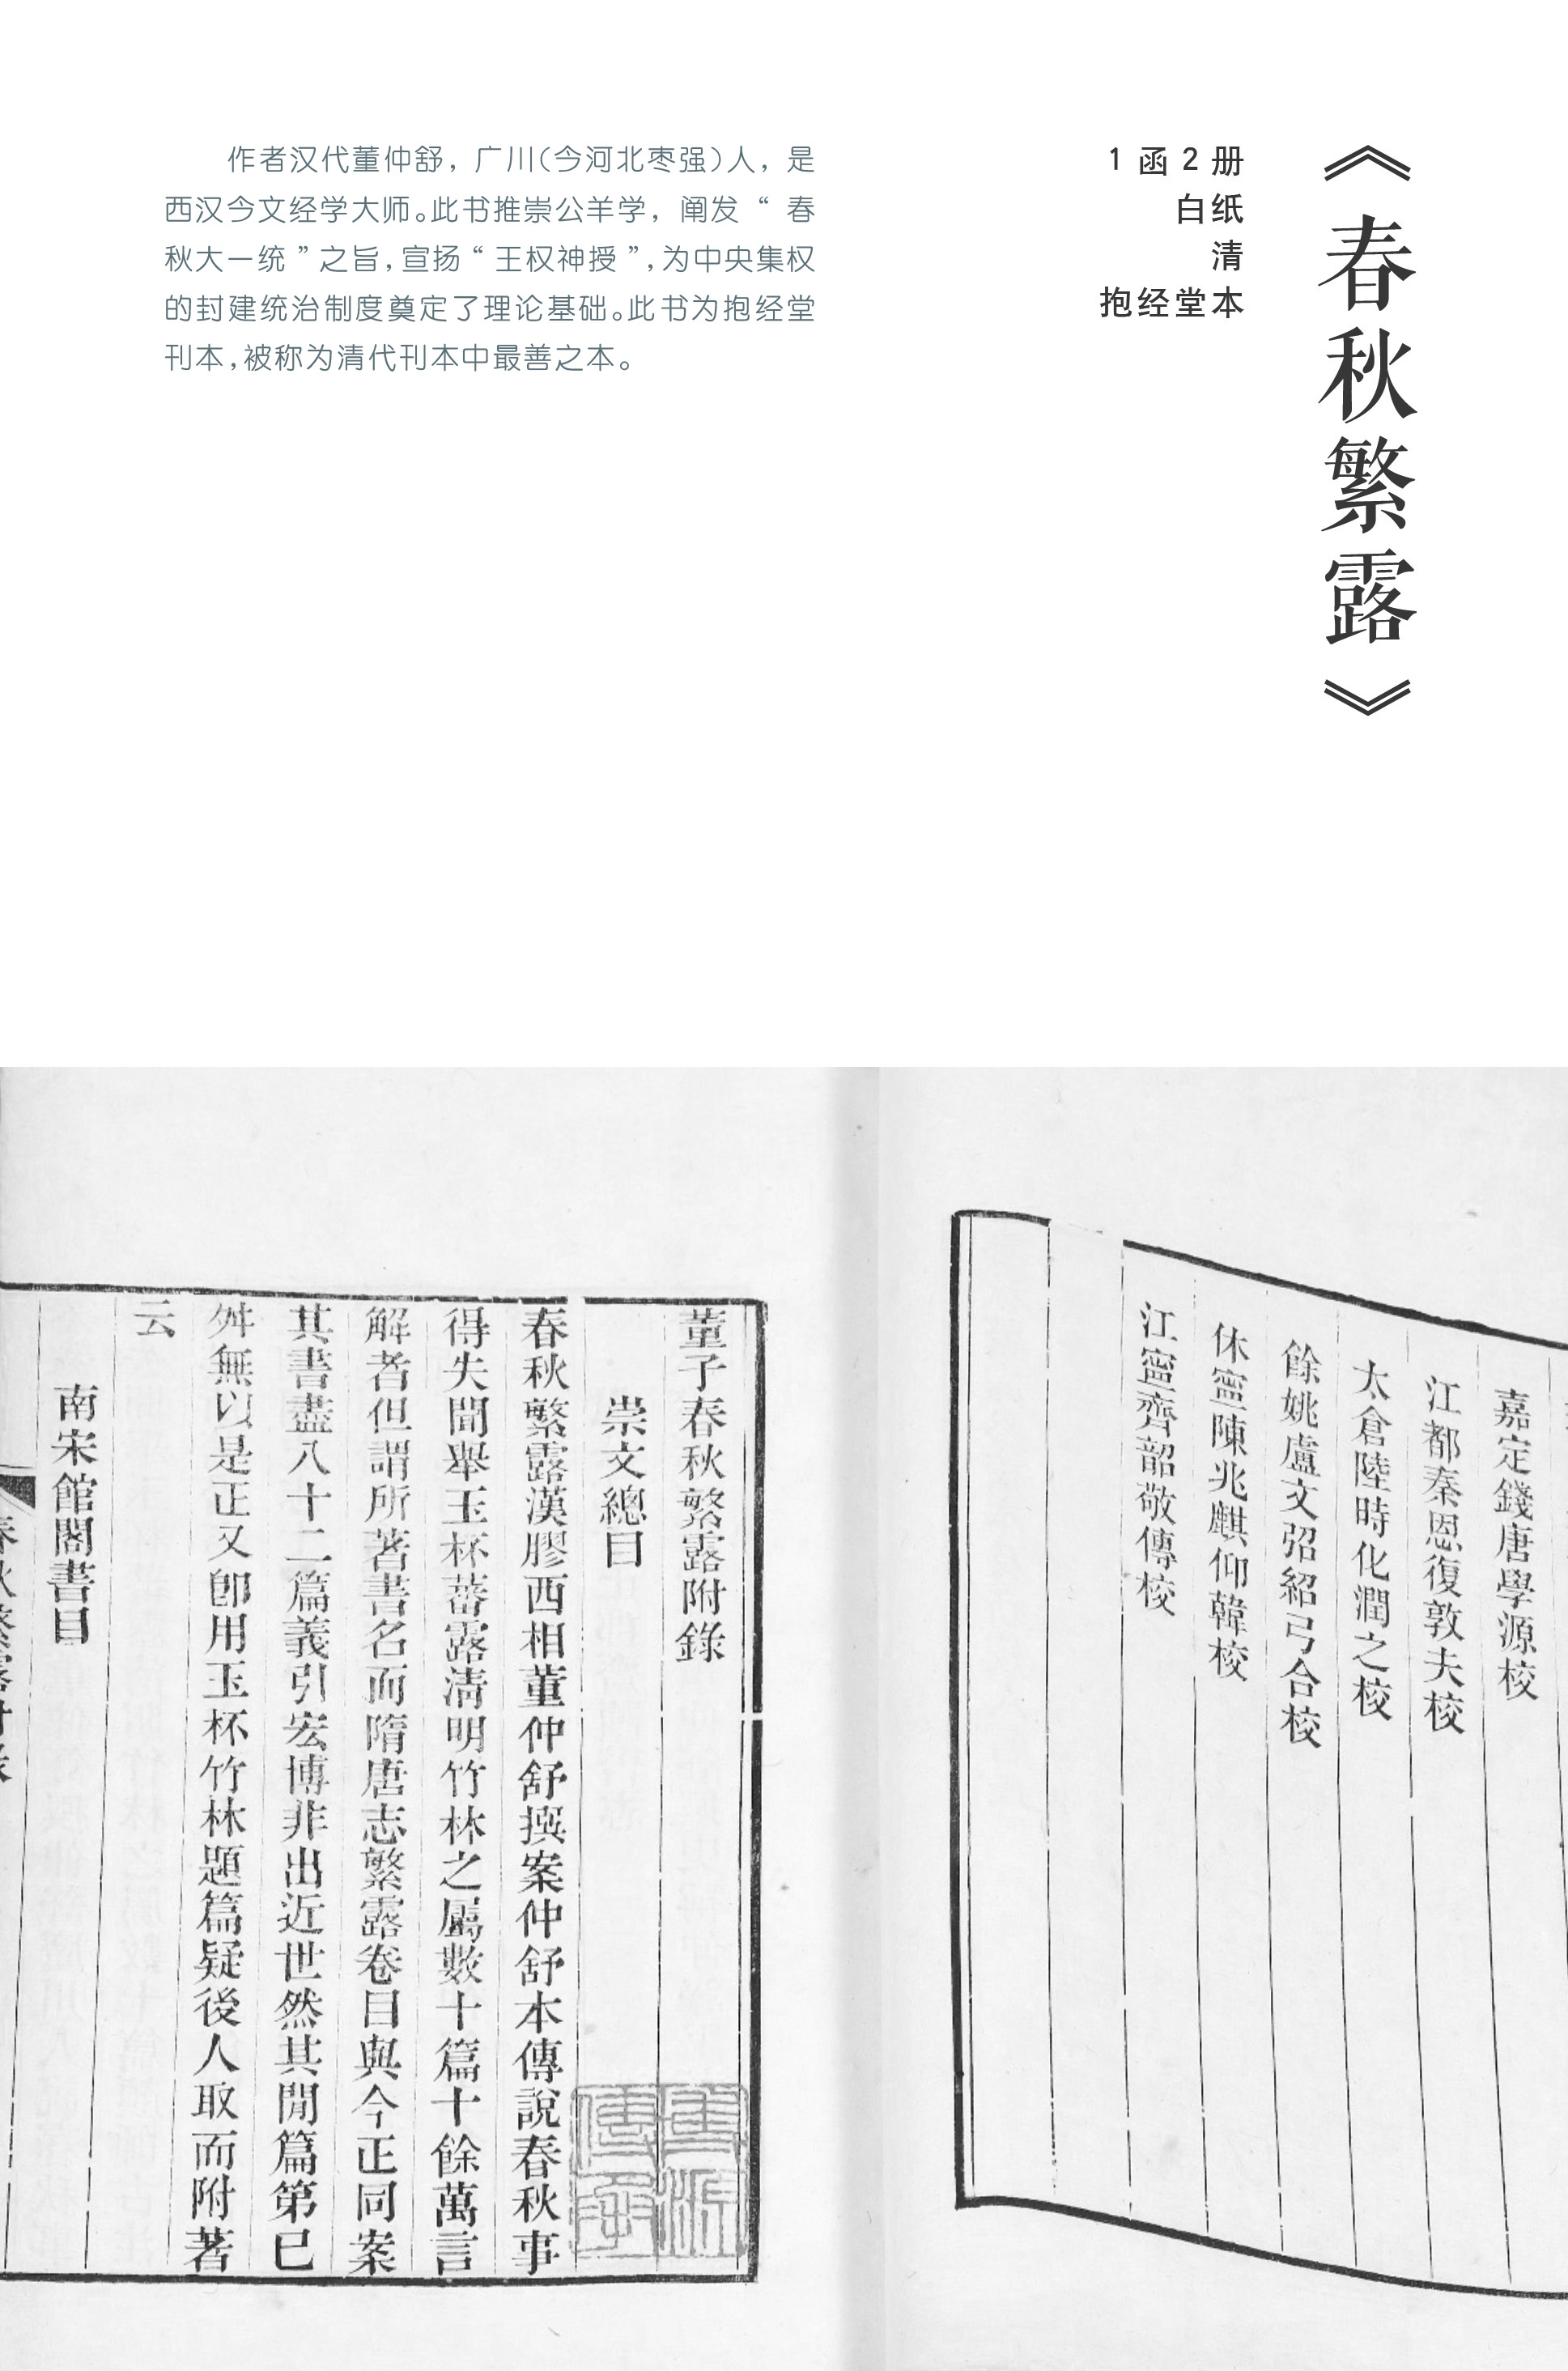 《春秋繁露》
1函2册
白纸
清
抱经堂本
作者汉代董仲舒，广川（今河北枣强）人，是
西汉今文经学大师。此书推崇公羊学，阐发“春
秋大一统”之旨，宣扬“王权神授”，为中央集权
的封建统治制度奠定了理论基础。此书为抱经堂
刊本，被称为清代刊本中最善之本。
嘉定錢唐學源校
江都秦恩復敦夫校
太倉陸時化潤之校
餘姚盧文弨紹弓合校
休寧陳兆麒仰韓校
江寧齊韶敬傳校
董子春秋繁露附錄
崇文總目
春秋繁露漢膠西相董仲舒撰案仲舒本傳說春秋事
得失聞舉玉杯蕃露淸明竹林之屬數十篇十餘萬言
解者但謂所著書名而隋唐志繁露卷目與今正同案
其書盡八十二篇義引宏博非出近世然其閒篇第已
舛無以是正又卽用玉杯竹林題篇疑後人取而附著
云
南宋館閣書目
春秋繁露附錄